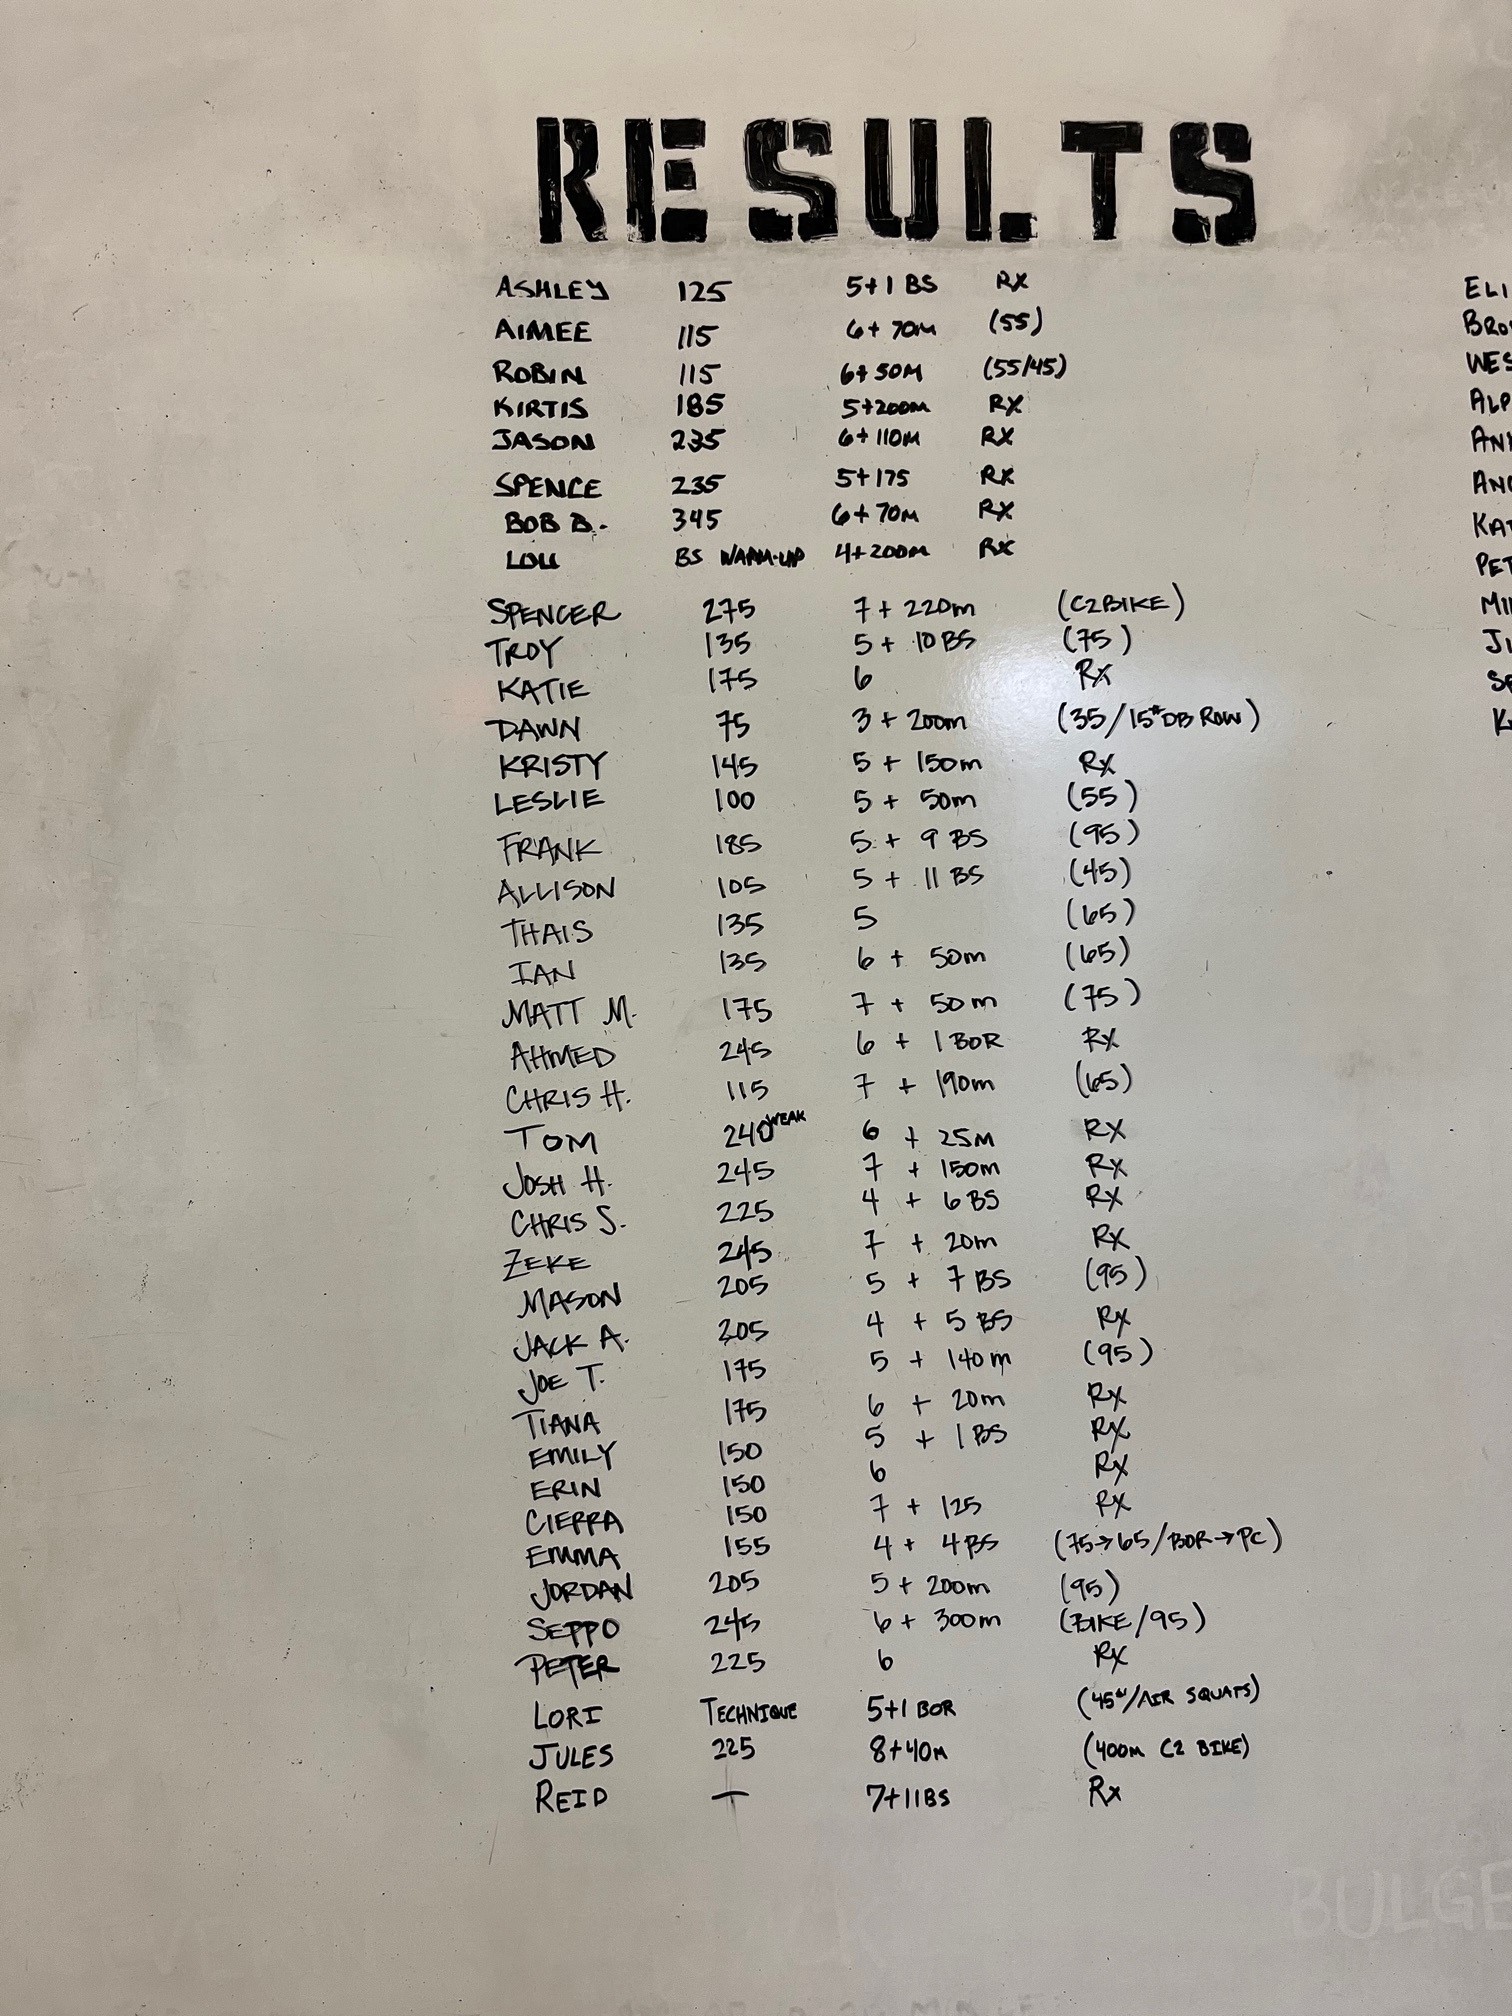 RESULTS
ASHLEY 125 5+1 BS RX
AIMEE 115 6+70M (55)
ROBIN 115 6+50M (55/45)
KIRTIS 185 5+200M RX
JASON 235 6+110M RX
SPENCE 235 5+175 RX
BOB B. 345 6+70M RX
LOU BS WARM-UP 4+200M RX
SPENCER 275 7 + 220m (C2BIKE)
TROY 135 5 + 10 BS (75)
KATIE 175 6 RX
DAWN 75 3 + 200m (35/15# DB ROW)
KRISTY 145 5 + 150m RX
LESLIE 100 5 + 50m (55)
FRANK 185 5 + 9 BS (95)
ALLISON 105 5 + 11 BS (45)
THAIS 135 5 (65)
IAN 135 6 + 50m (65)
MATT M. 175 7 + 50m (75)
AHMED 245 6 + 1 BOR RX
CHRIS H. 115 7 + 190m (65)
TOM 240 WEAK 6 + 25M RX
JOSH H. 245 7 + 150m RX
CHRIS S. 225 4 + 6 BS RX
ZEKE 245 7 + 20m RX
MASON 205 5 + 7 BS (95)
JACK A. 205 4 + 5 BS RX
JOE T. 175 5 + 140m (95)
TIANA 175 6 + 20m RX
EMILY 150 5 + 1 BS RX
ERIN 150 6 RX
CIERRA 150 7 + 125 RX
EMMA 155 4 + 4 BS (75→65/BOR→PC)
JORDAN 205 5 + 200m (95)
SEPPO 245 6 + 300m (BIKE/95)
PETER 225 6 RX
LORI TECHNIQUE 5+1 BOR (45#/AIR SQUATS)
JULES 225 8+40M (400M C2 BIKE)
REID — 7+11BS RX
ELI
BRO
WES
ALP
KAT
PET
BULGE